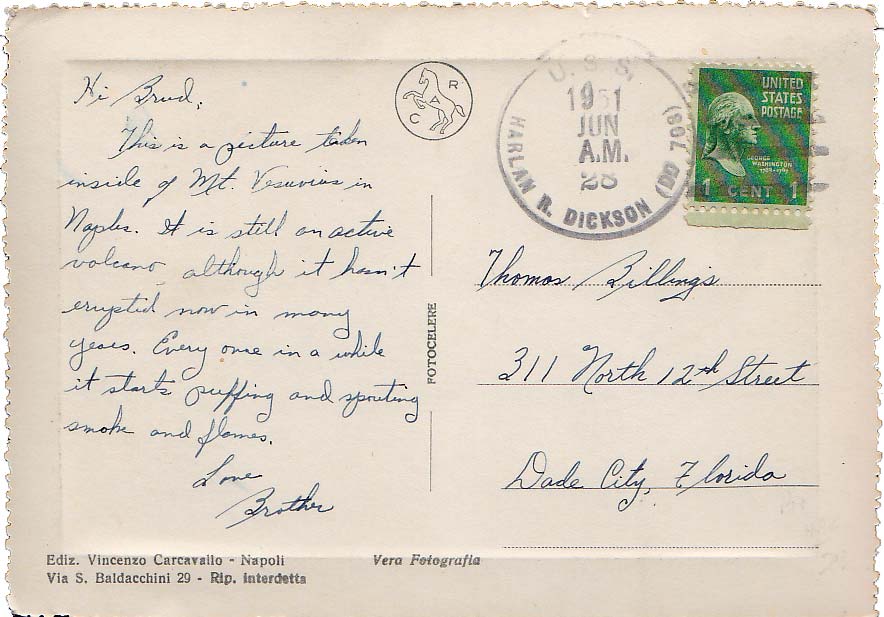 Hi Brud,
This is a picture taken
inside of Mt. Vesuvius in
Naples. It is still an active
volcano although it hasn't
erupted now in many
years. Every once in a while
it starts puffing and spouting
smoke and flames.
Love
Brother
C A R
U.S.S.
1951
JUN
28
A.M.
HARLAN R. DICKSON (DD 708)
UNITED
STATES
POSTAGE
GEORGE
WASHINGTON
1789-1797
1 CENT 1
FOTOCELERE
Thomas Billings
311 North 12th Street
Dade City, Florida
Ediz. Vincenzo Carcavallo - Napoli
Via S. Baldacchini 29 - Rip. Interdetta
Vera Fotografia